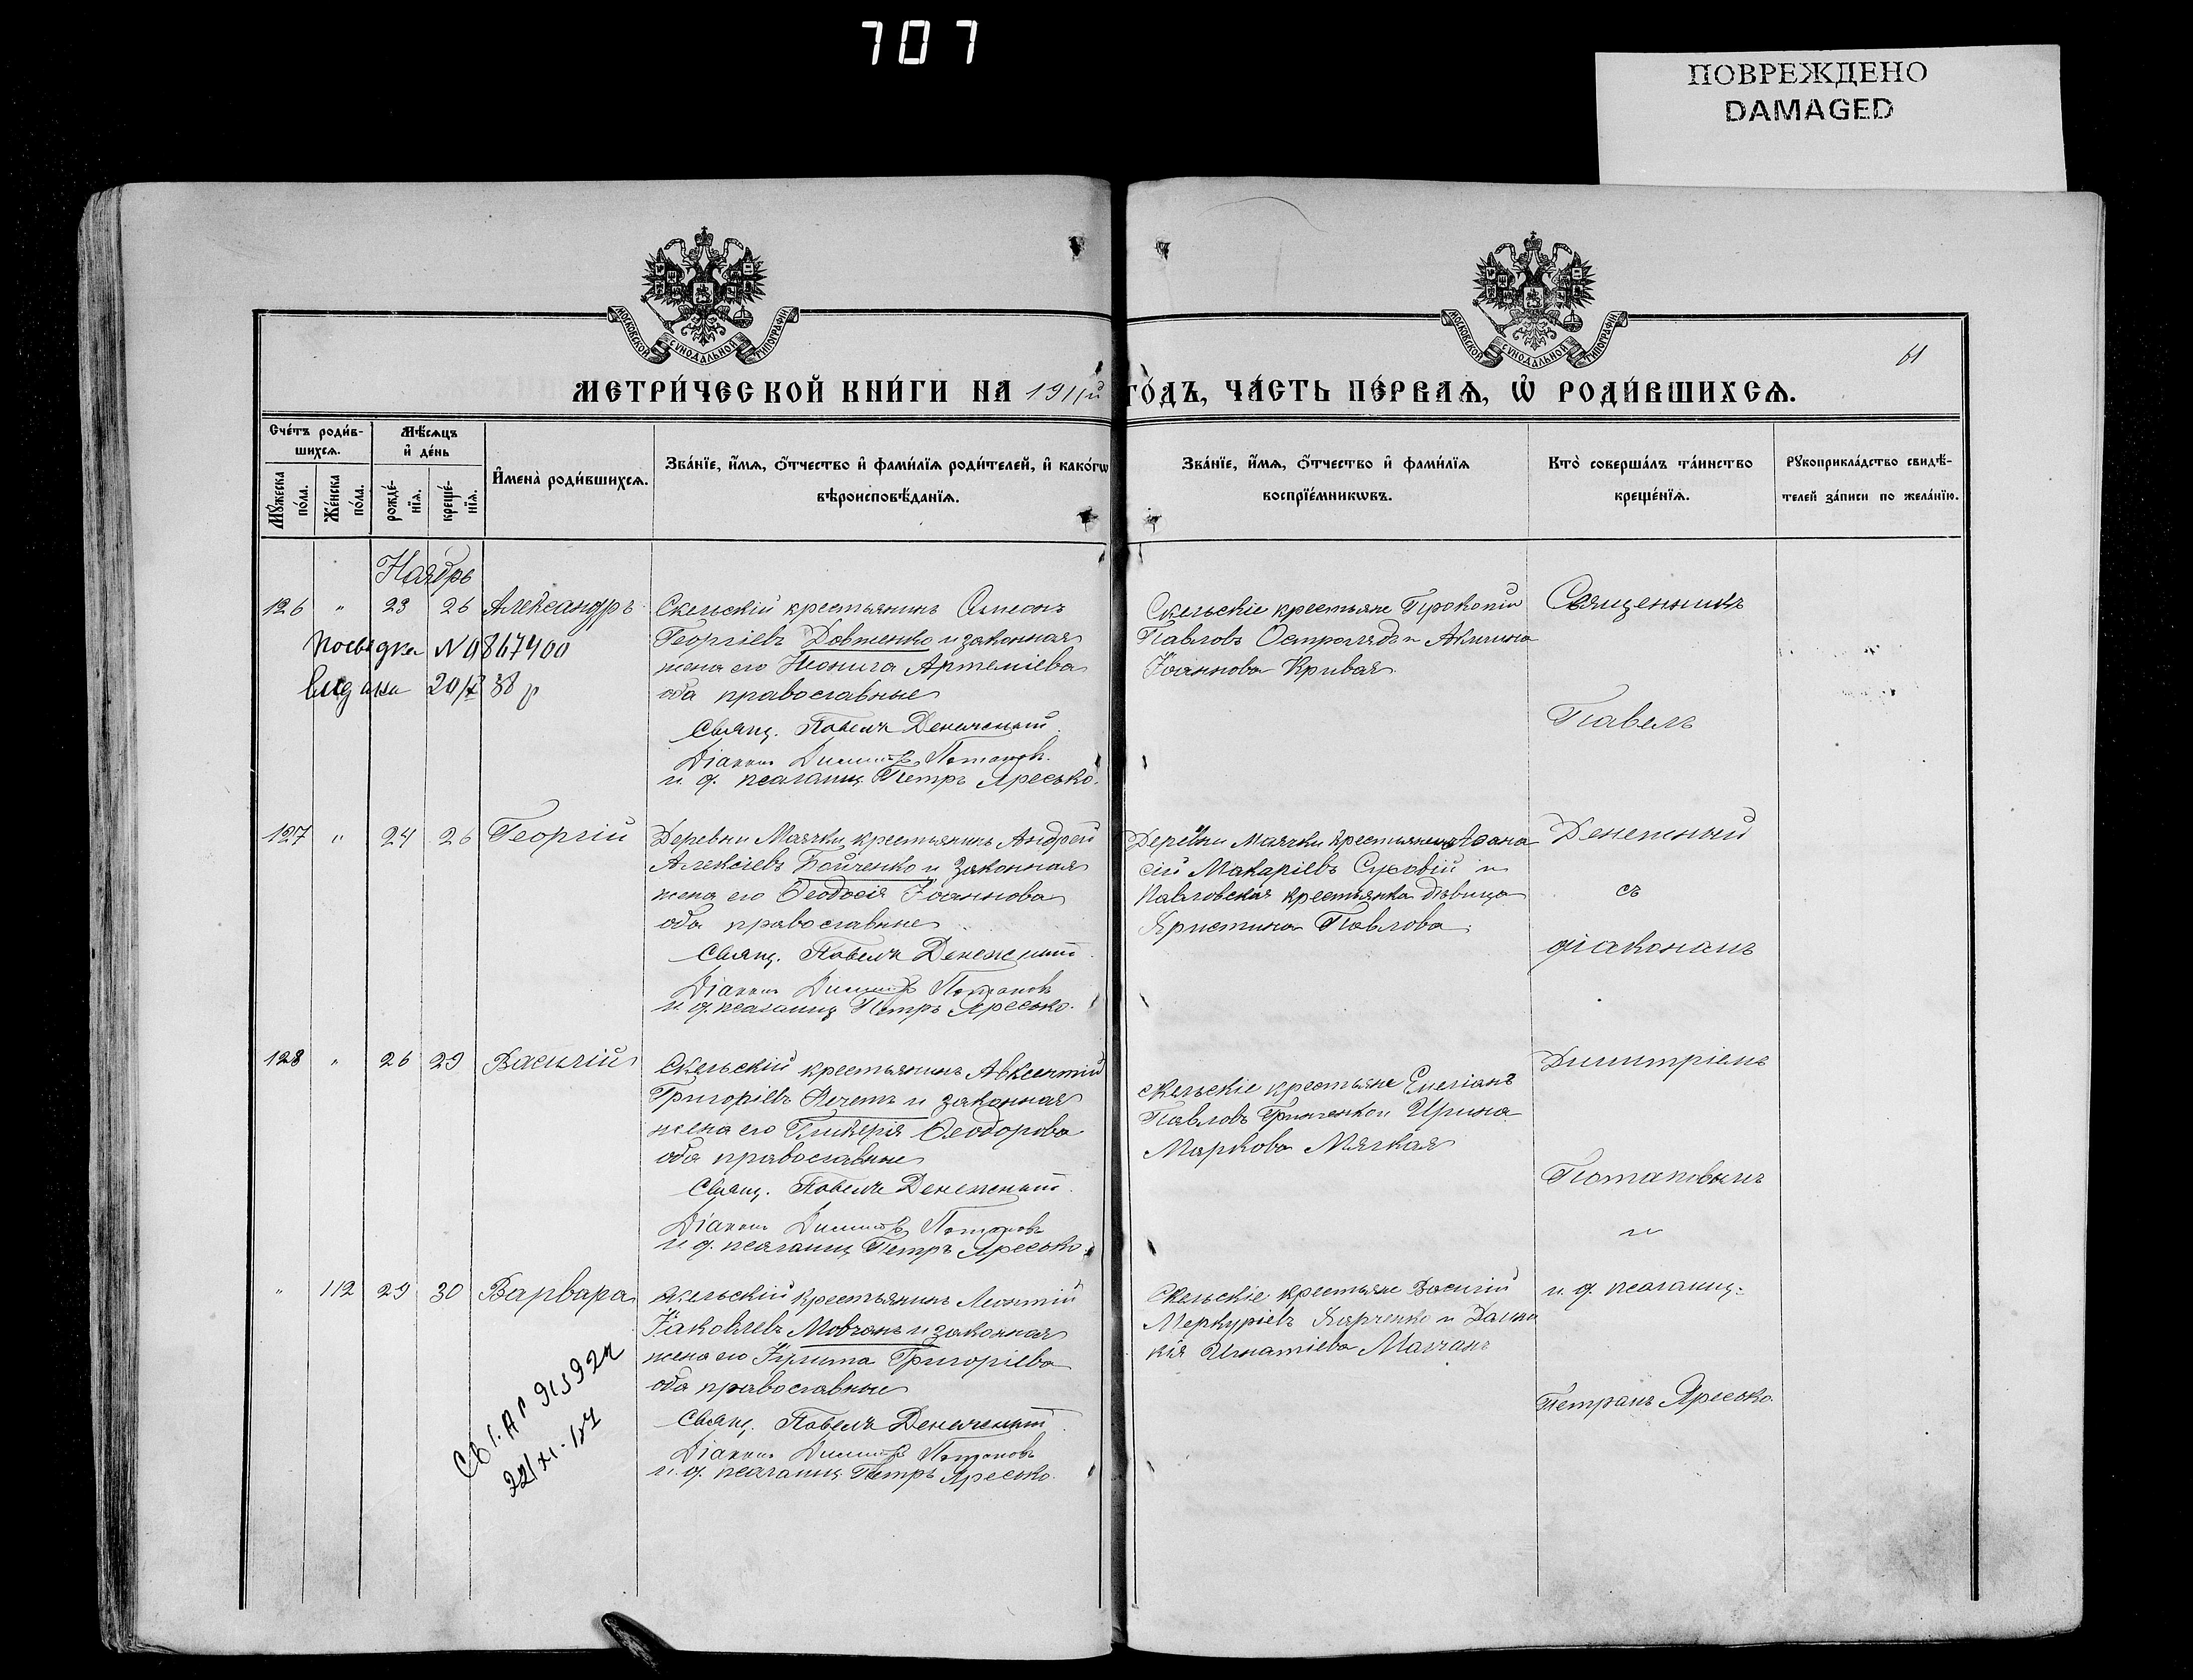 707
ПОВРЕЖДЕНО
DAMAGED
МОСКОВСКОЙ СѴНОДАЛЬНОЙ ТИПОГРАФІИ
МОСКОВСКОЙ СѴНОДАЛЬНОЙ ТИПОГРАФІИ
61
МЕТРИ́ЧЕСКОЙ КНИ́ГИ НА 1911й ГО́ДЪ, ЧА́СТЬ ПЕ́РВАѦ, Ѡ҆ РОДИ́ВШИХСѦ.
Сче́тъ роди́в-
шихсѧ.
Мꙋ́жеска по́ла.
Же́нска по́ла.
Мѣ́сѧцъ
и҆ де́нь
рожде́-
нїѧ.
креще́-
нїѧ.
И҆мена̀ роди́вшихсѧ.
Зва́нїе, и҆́мѧ, ѻ҆́тчество и҆ фами́лїѧ роди́телей, и҆ како́гѡ
вѣроисповѣ́данїѧ.
Зва́нїе, и҆́мѧ, ѻ҆́тчество и҆ фами́лїѧ
воспрїе́мникѡвъ.
Кто̀ соверша́лъ та́инство
креще́нїѧ.
Рꙋкоприкла́дство свидѣ́-
телей за́писи по жела́нїю.
Ноябрь
126 " 23 26 Александръ
Скельскій крестьянинъ
Георгіевъ Довженко и законная
жена его Артеміева
оба православные
Свящ. Павелъ Денежный
Діаконъ Димитрій Потаповъ
и. д. псаломщ. Петръ Яресько.
№ 0867400
20/X 38 р
Скельскіе крестьяне Прокопій
Павловъ Остроглядъ и Акилина
Іоаннова Кривая.
Священникъ
Павелъ
127 " 24 26 Георгій
Деревни Маячки крестьянинъ Андрей
Алексіевъ Бойченко и законная
жена его Ѳеодосія Іоаннова
оба православные
Свящ. Павелъ Денежный.
Діаконъ Димитрій Потаповъ
и. д. псаломщ Петръ Яресько.
Деревни Маячки крестьянинъ Аѳана
сій Макаріевъ Суховій и
Павловская крестьянка дѣвица
Христина Павлова.
Денежный
съ
діакономъ
128 " 26 29 Василій
Скельскій крестьянинъ Авксентій
Григоріевъ Нечетъ и законная
жена его Гликерія Ѳеодорова
оба православные
Свящ. Павелъ Денежный.
Діаконъ Димитрій Потаповъ
и. д. псаломщ Петръ Яресько.
Скельскіе крестьяне Емеліанъ
Павловъ Гринченко и Ирина
Маркова Мягкая
Димитріемъ
Потаповымъ
и
" 112 29 30 Варвара
Скельскій крестьянинъ Леонтій
Іаковлевъ Мовчанъ и законная
жена его Іулита Григоріева
оба православные
Свящ. Павелъ Денежный.
Діаконъ Димитрій Потаповъ
и. д. псаломщ. Петръ Яресько.
Скельскіе крестьяне Василій
Меркуріевъ Харченко и Домни
кія Игнатіева Мовчанъ
и. д. псаломщ.
Петромъ Яресько.